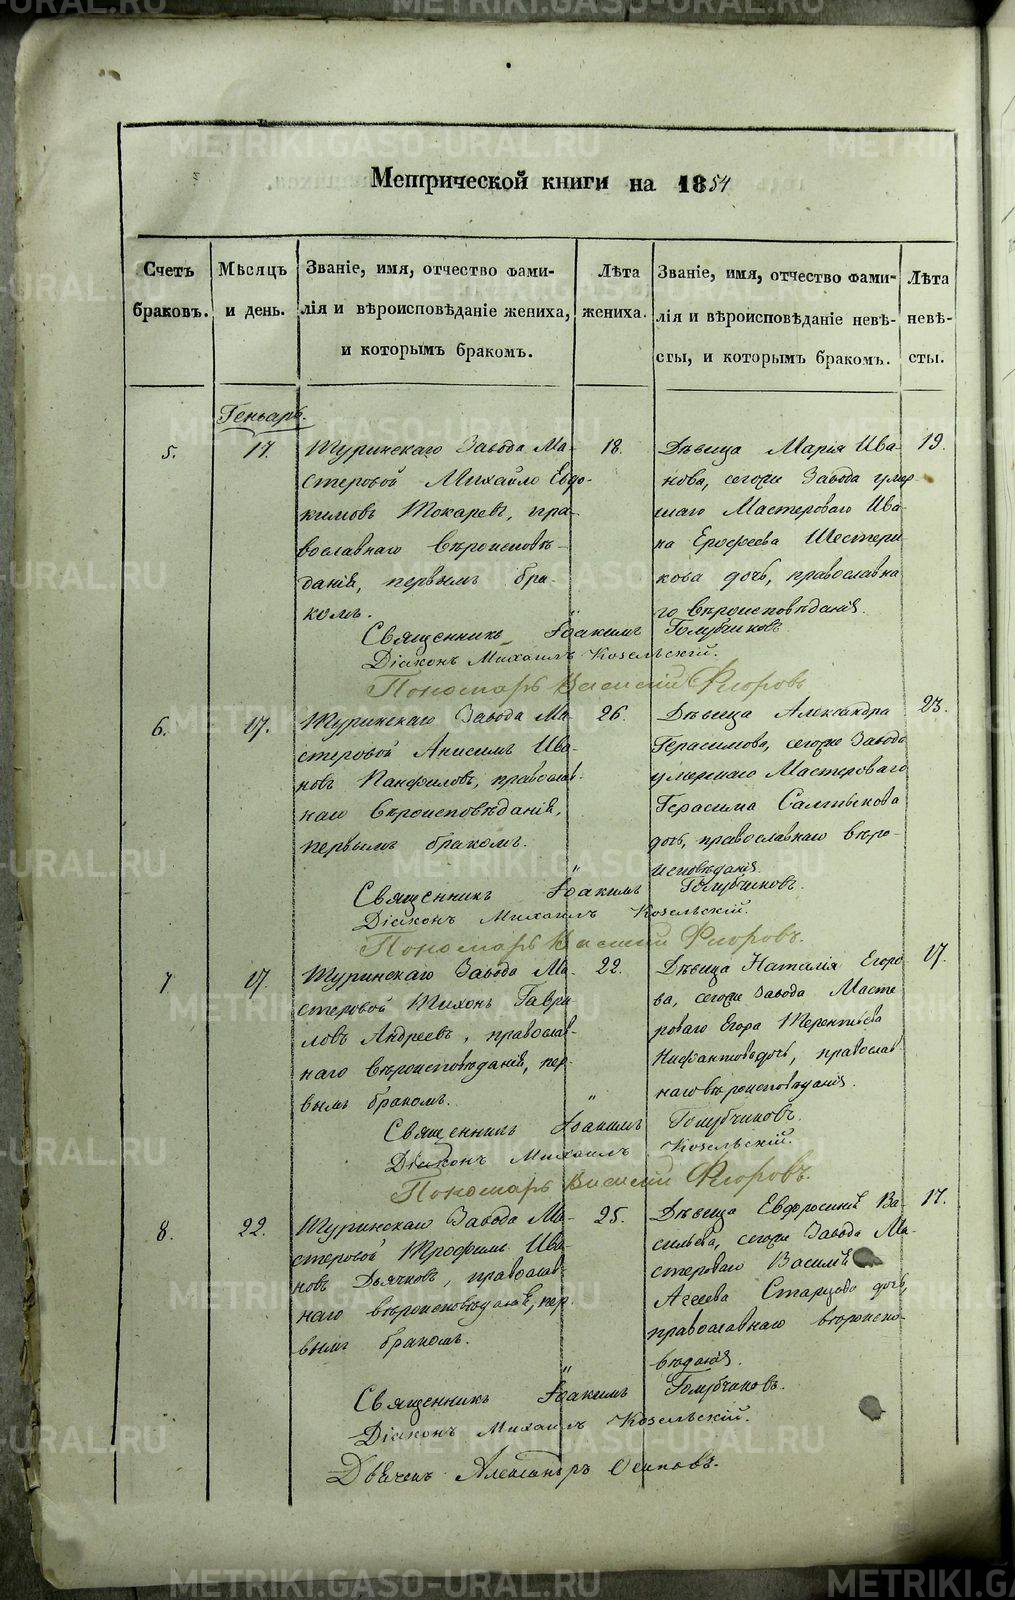 Метрической книги на 1854
Счетъ браковъ.
Мѣсяцъ и день.
Званіе, имя, отчество фами-
лія и вѣроисповѣданіе жениха,
и которымъ бракомъ.
Лѣта жениха.
Званіе, имя, отчество фами-
лія и вѣроисповѣданіе невѣ-
сты, и которымъ бракомъ.
Лѣта невѣ-
сты.
Геньарь.
5.
17.
Туринскаго Завода Ма-
стеровой Михайло Евдо-
кимовъ Токаревъ, пра-
вославнаго вѣроисповѣ-
данія, первымъ бра-
комъ.
18.
Дѣвица Марія Ива-
нова, сегоже Завода умер-
шаго Мастероваго Ива-
на Ерофеева Шестери
кова дочь, православна
го вѣроисповѣданія.
19.
Священникъ Іоакимъ Голубчиковъ.
Діаконъ Михаилъ Козельскій.
Пономарь Василій Флоровъ
6.
17.
Туринскаго Завода Ма-
стеровой Анисимъ Ива-
новъ Панфиловъ, православ-
наго вѣроисповѣданія,
первымъ бракомъ.
26.
Дѣвица Александра
Герасимова, сегоже Завода
умершаго Мастероваго
Герасима Салтыкова
дочь, православнаго вѣро-
исповѣданія.
23.
Священникъ Іоакимъ Голубчиковъ.
Діаконъ Михаилъ Козельскій.
Пономарь Василій Флоровъ.
7
17.
Туринскаго Завода Ма-
стеровой Тихонъ Гаври
ловъ Андреевъ, православ-
наго вѣроисповѣданія, пер-
вымъ бракомъ.
22.
Дѣвица Наталія Егоро-
ва, сегоже Завода Масте
роваго Егора Терентьева
Нифантовъ дочь, православ-
наго вѣроисповѣданія.
17.
Священникъ Іоакимъ Голубчиковъ.
Діаконъ Михаилъ Козельскій.
Пономарь Василій Флоровъ.
8.
22.
Туринскаго Завода Ма-
стеровой Трофимъ Ива-
новъ Дьячковъ, православ-
наго вѣроисповѣданія, пер-
вымъ бракомъ.
25.
Дѣвица Евфросинія Ва-
сильева, сегоже Завода Ма-
стероваго Василія
Агеева Старцова дочь,
православнаго вѣроиспо-
вѣданія.
17.
Священникъ Іоакимъ Голубчиковъ.
Діаконъ Михаилъ Козельскій.
Дьячекъ Александръ Осиповъ.
METRIKI.GASO-URAL.RU